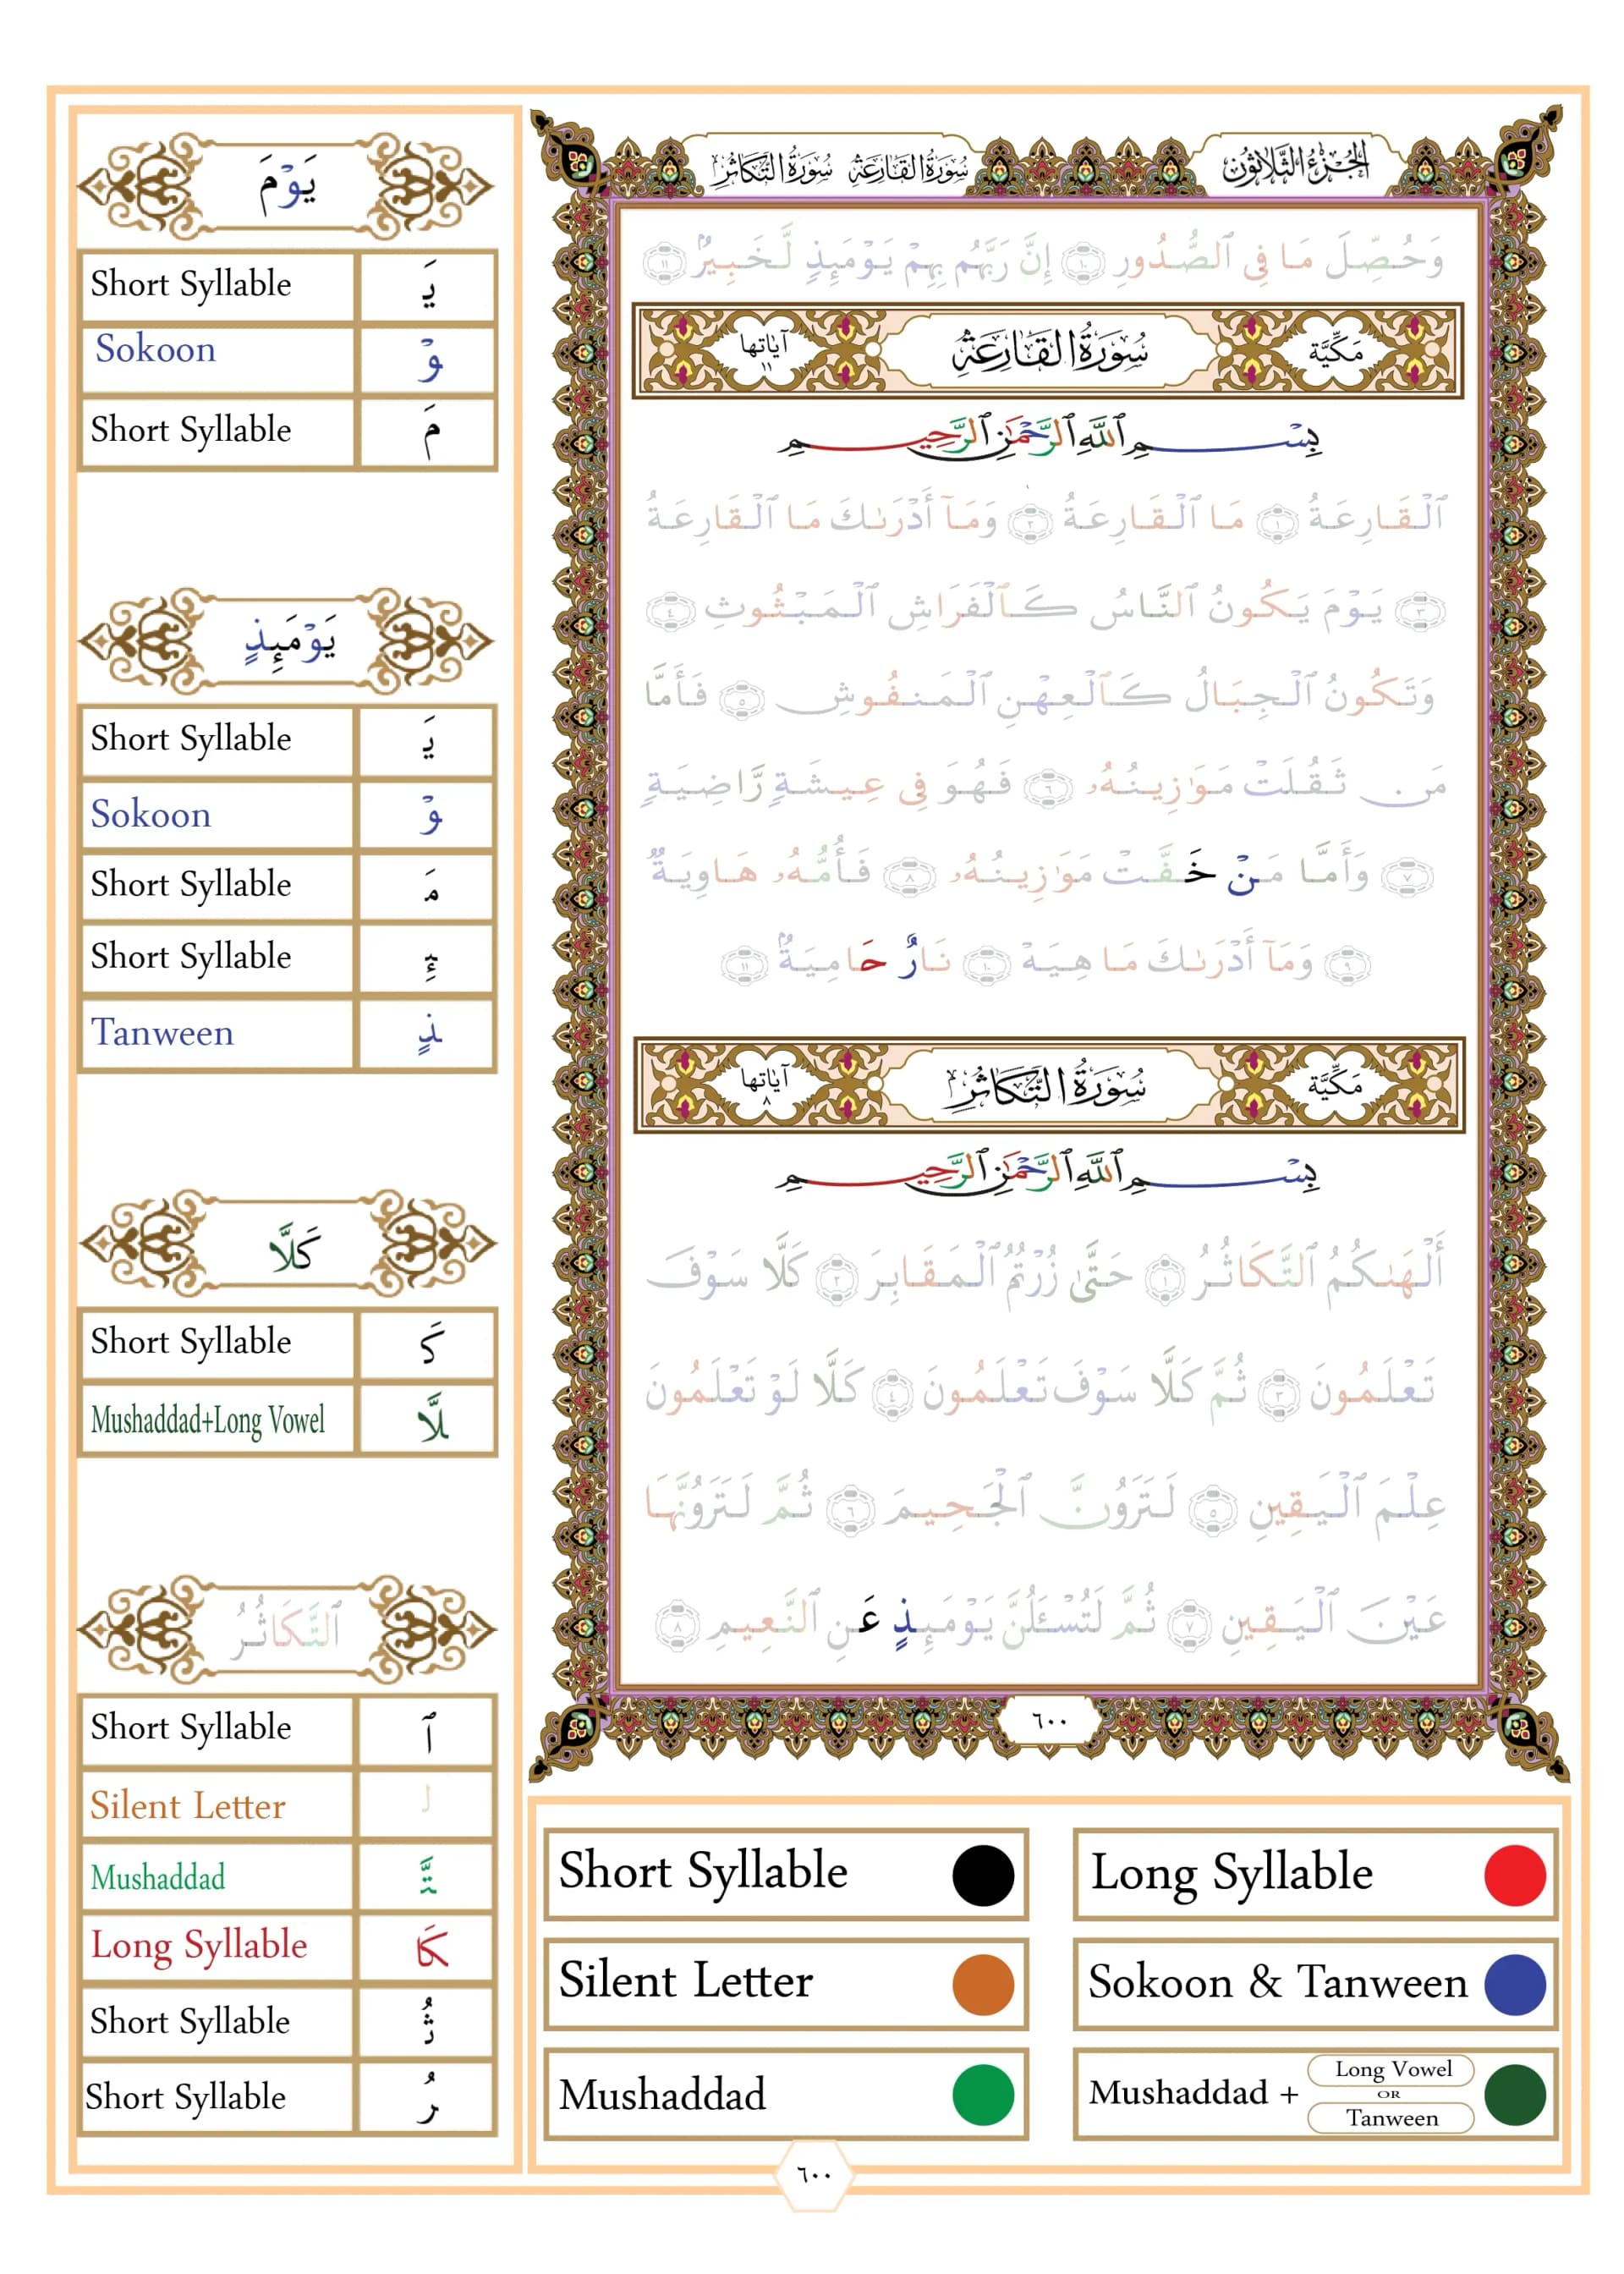 يَوْمَ
Short Syllable يَـ
Sokoon وْ
Short Syllable مَ
يَوْمَئِذٍ
Short Syllable يَـ
Sokoon وْ
Short Syllable مَـ
Short Syllable ئِـ
Tanween ذٍ
كَلَّا
Short Syllable كَـ
Mushaddad+Long Vowel لَّا
ٱلتَّكَاثُرُ
Short Syllable ٱ
Silent Letter لـ
Mushaddad تَّـ
Long Syllable كَا
Short Syllable ثُـ
Short Syllable رُ
الجُزْءُ الثَّلَاثُونَ
سُورَةُ القَارِعَةِ سُورَةُ التَّكَاثُرِ
وَحُصِّلَ مَا فِى ٱلصُّدُورِ ١٠ إِنَّ رَبَّهُم بِهِمْ يَوْمَئِذٍ لَّخَبِيرٌۢ ١١
مَكِّيَّة سُورَةُ القَارِعَةِ آيَاتُها ١١
بِسْمِ ٱللَّهِ ٱلرَّحْمَٰنِ ٱلرَّحِيمِ
ٱلْقَارِعَةُ ١ مَا ٱلْقَارِعَةُ ٢ وَمَآ أَدْرَىٰكَ مَا ٱلْقَارِعَةُ
٣ يَوْمَ يَكُونُ ٱلنَّاسُ كَٱلْفَرَاشِ ٱلْمَبْثُوثِ ٤
وَتَكُونُ ٱلْجِبَالُ كَٱلْعِهْنِ ٱلْمَنفُوشِ ٥ فَأَمَّا
مَن ثَقُلَتْ مَوَٰزِينُهُۥ ٦ فَهُوَ فِى عِيشَةٍ رَّاضِيَةٍ
٧ وَأَمَّا مَنْ خَفَّتْ مَوَٰزِينُهُۥ ٨ فَأُمُّهُۥ هَاوِيَةٌ
٩ وَمَآ أَدْرَىٰكَ مَا هِيَهْ ١٠ نَارٌ حَامِيَةٌۢ ١١
مَكِّيَّة سُورَةُ التَّكَاثُرِ آيَاتُها ٨
بِسْمِ ٱللَّهِ ٱلرَّحْمَٰنِ ٱلرَّحِيمِ
أَلْهَىٰكُمُ ٱلتَّكَاثُرُ ١ حَتَّىٰ زُرْتُمُ ٱلْمَقَابِرَ ٢ كَلَّا سَوْفَ
تَعْلَمُونَ ٣ ثُمَّ كَلَّا سَوْفَ تَعْلَمُونَ ٤ كَلَّا لَوْ تَعْلَمُونَ
عِلْمَ ٱلْيَقِينِ ٥ لَتَرَوُنَّ ٱلْجَحِيمَ ٦ ثُمَّ لَتَرَوُنَّهَا
عَيْنَ ٱلْيَقِينِ ٧ ثُمَّ لَتُسْـَٔلُنَّ يَوْمَئِذٍ عَنِ ٱلنَّعِيمِ ٨
٦٠٠
Short Syllable
Long Syllable
Silent Letter
Sokoon & Tanween
Mushaddad
Mushaddad + Long Vowel OR Tanween
٦٠٠